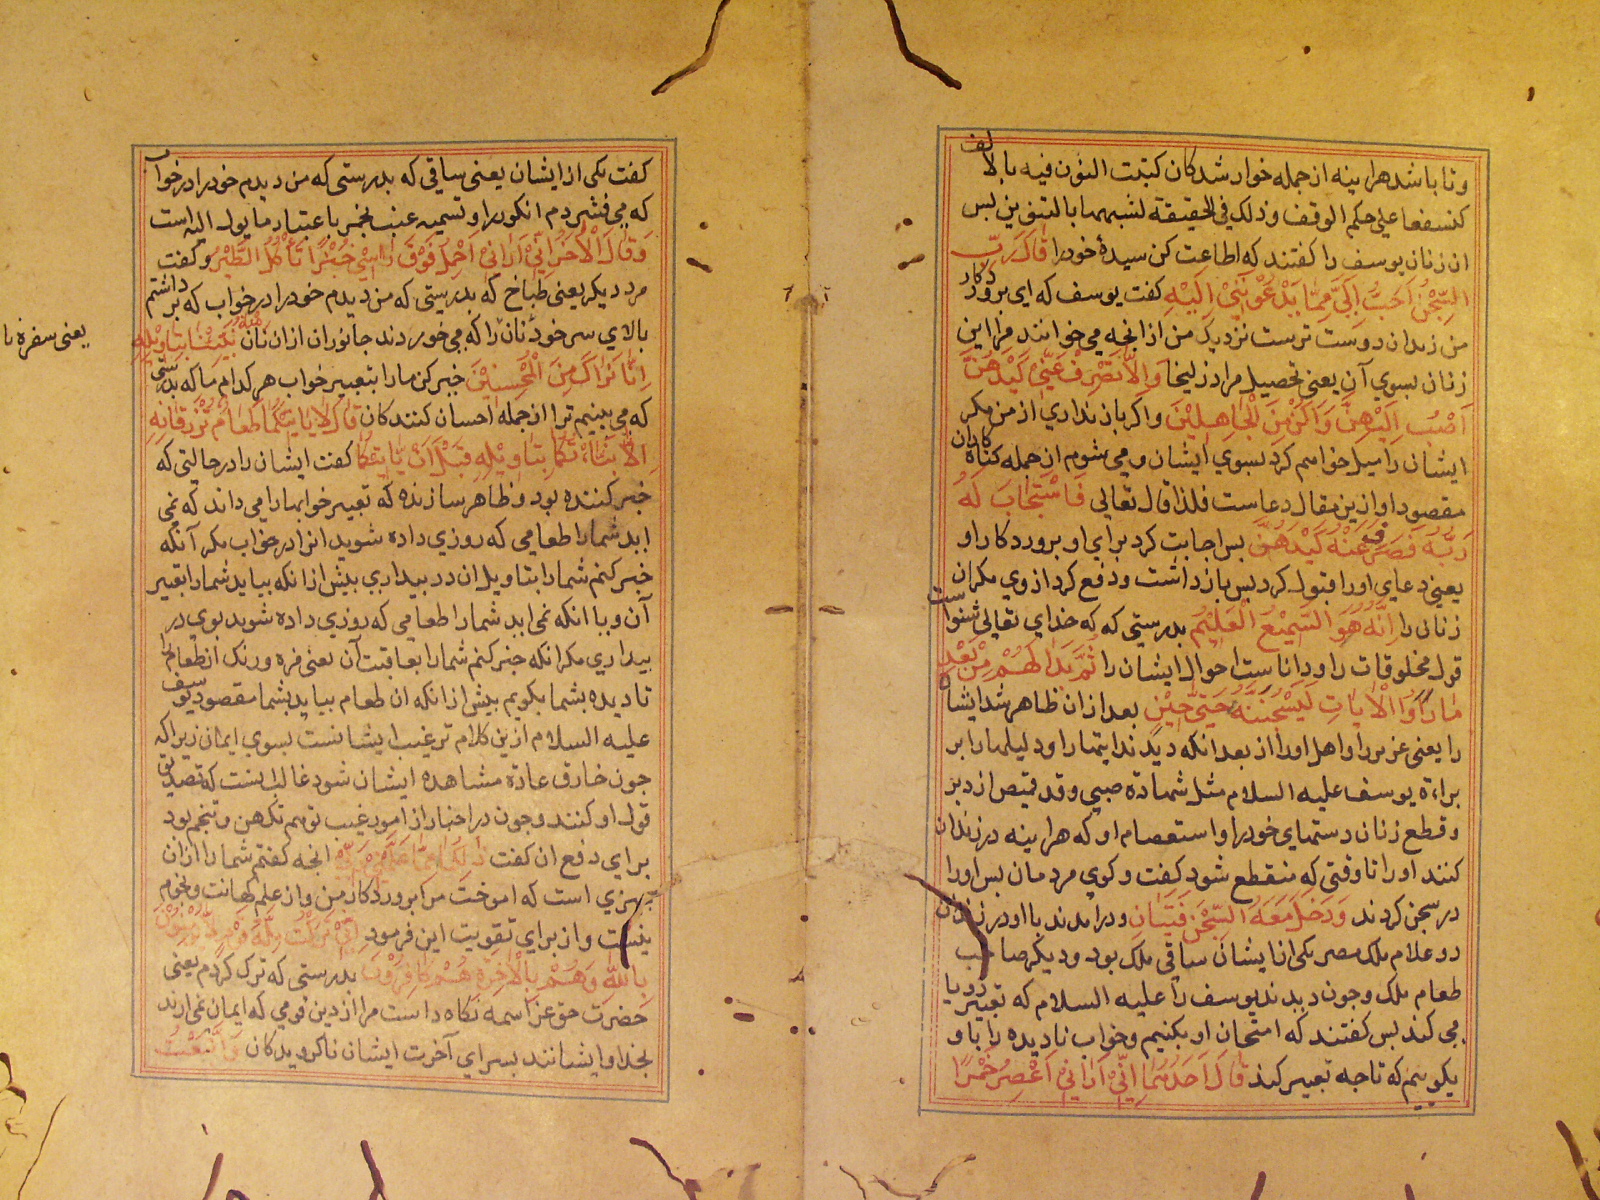 وتا باشد هراینه از جمله خوار شدکان کتبت النون فیه بالالف
کنسفعا علی حکم الوقف وذلک فی الحقیقة لشبهها بالتنوین بس
ان زنان یوسف را کفتند که اطاعت کن سیدهٔ خودرا قَالَ رَبِّ
السِّجْنُ اَحَبُّ اِلَیَّ مِمَّا یَدْعُوْنَنِیْ اِلَیْهِ کفت یوسف که ای بروردکار
من زندان دوست ترست نزدیک من از انجه می خوانند مرا این
زنان بسوی آن یعنی تحصیل مراد زلیخا وَاِلَّا تَصْرِفْ عَنِّیْ کَیْدَهُنَّ
اَصْبُ اِلَیْهِنَّ وَاَکُنْ مِنَ الْجَاهِلِیْنَ واکر باز نداری از من مکر
ایشان را میل خواهم کرد بسوی ایشان ومی شوم از جمله کناه کاران
مقصود او ازین مقال دعاست فلذا قال تعالی فَاسْتَجَابَ لَهُ
رَبُّهُ فَصَرَفَ عَنْهُ کَیْدَهُنَّ بس اجابت کرد برای او بروردکار او
یعنی دعای اورا قبول کرد بس باز داشت ودفع کرد از وی مکر ان
زنان را اِنَّهُ هُوَ السَّمِیْعُ الْعَلِیْمُ بدرستی که که خدای تعالی شنواست
قول مخلوقات را ودانا ست احوال ایشان را ثُمَّ بَدَا لَهُمْ مِنْ بَعْدِ
مَا رَاَوُا الْاٰیَاتِ لَیَسْجُنُنَّهُ حَتّٰی حِیْنٍ بعد ازان ظاهر شد ایشان
را یعنی عزیز را واهل اورا از بعد انکه دیدند ایتها را ودلیلها را بر
براءة یوسف علیه السلام مثل شهادة صبی وقد قمیص از دبر
وقطع زنان دستهای خودرا واستعصام او که هراینه در زندان
کنند اورا تا وقتی که منقطع شود کفت وکوی مردمان بس اورا
در سجن کردند وَدَخَلَ مَعَهُ السِّجْنَ فَتَیَانِ ودرامدند با او در زندان
دو غلام ملک مصر یکی ازایشان ساقی ملک بود ودیکر صاحب
طعام ملک وجون دیدند یوسف را علیه السلام که تعبیر رویا
می کند بس کفتند که امتحان او بکنیم وخواب نادیده را باو
بکوییم که تا جه تعبیر کند قَالَ اَحَدُهُمَا اِنِّیْ اَرَانِیْ اَعْصِرُ خَمْرًا
کفت یکی از ایشان یعنی ساقی که بدرستی که من دیدم خودرا در خواب
که می فشردم انکور را وتسمیه عنب بخمر باعتبار ما یول الیه است
وَقَالَ الْاٰخَرُ اِنِّیْ اَرَانِیْ اَحْمِلُ فَوْقَ رَاْسِیْ خُبْزًا تَاْکُلُ الطَّیْرُ وکفت
مرد دیکر یعنی طباخ که بدرستی که من دیدم خودرا در خواب که برداشتم
بالای سر خود نان را که می خوردند جانوران ازان نان مِنْهُ نَبِّئْنَا بِتَاْوِیْلِهِ
یعنی سفره نا
اِنَّا نَرَاکَ مِنَ الْمُحْسِنِیْنَ خبر کن مارا بتعبیر خواب هر کدام ما که بدرستی
که می بینیم ترا از جمله احسان کنندکان قَالَ لَا یَاْتِیْکُمَا طَعَامٌ تُرْزَقَانِهِ
اِلَّا نَبَّاْتُکُمَا بِتَاْوِیْلِهِ قَبْلَ اَنْ یَاْتِیَکُمَا کفت ایشان را در حالتی که
خبر کننده بود وظاهر سازنده که تعبیر خوابها را می داند که نمی
ابد شمارا طعامی که روزی داده شوید انرا در خواب مکر آنکه
خبر کنم شمارا بتاویل ان در بیداری بیش ازانکه بیاید شمارا تعبیر
آن ویا انکه نمی ابد شمارا طعامی که روزی داده شوید بوی در
بیداری مکر انکه خبر کنم شمارا بعاقبت آن یعنی مزه ورنک ان طعام را
نادیده بشما بکویم بیش ازانکه ان طعام بیاید بشما مقصود یوسف
علیه السلام ازین کلام ترغیب ایشانست بسوی ایمان زیراکه
جون خارق عادة مشاهده ایشان شود غالب انست که تصدیق
قول او کنند وجون در اخبار از امور غیب توهم تکهن وتنجم بود
برای دفع ان کفت ذٰلِکُمَا مِمَّا عَلَّمَنِیْ رَبِّیْ انجه کفتم شمارا ازان
جیزی است که اموخت مرا بروردکار من واز علم کهانت ونجوم
نیست واز برای تقویت این فرمود اِنِّیْ تَرَکْتُ مِلَّةَ قَوْمٍ لَا یُؤْمِنُوْنَ
بِاللّٰهِ وَهُمْ بِالْاٰخِرَةِ هُمْ کَافِرُوْنَ بدرستی که ترک کردم یعنی
حضرت حق عز اسمه نکاه داشت مرا از دین قومی که ایمان نمی ارند
بخدا وایشانند بسرای آخرت ایشان ناکرویدکان وَاتَّبَعْتُ